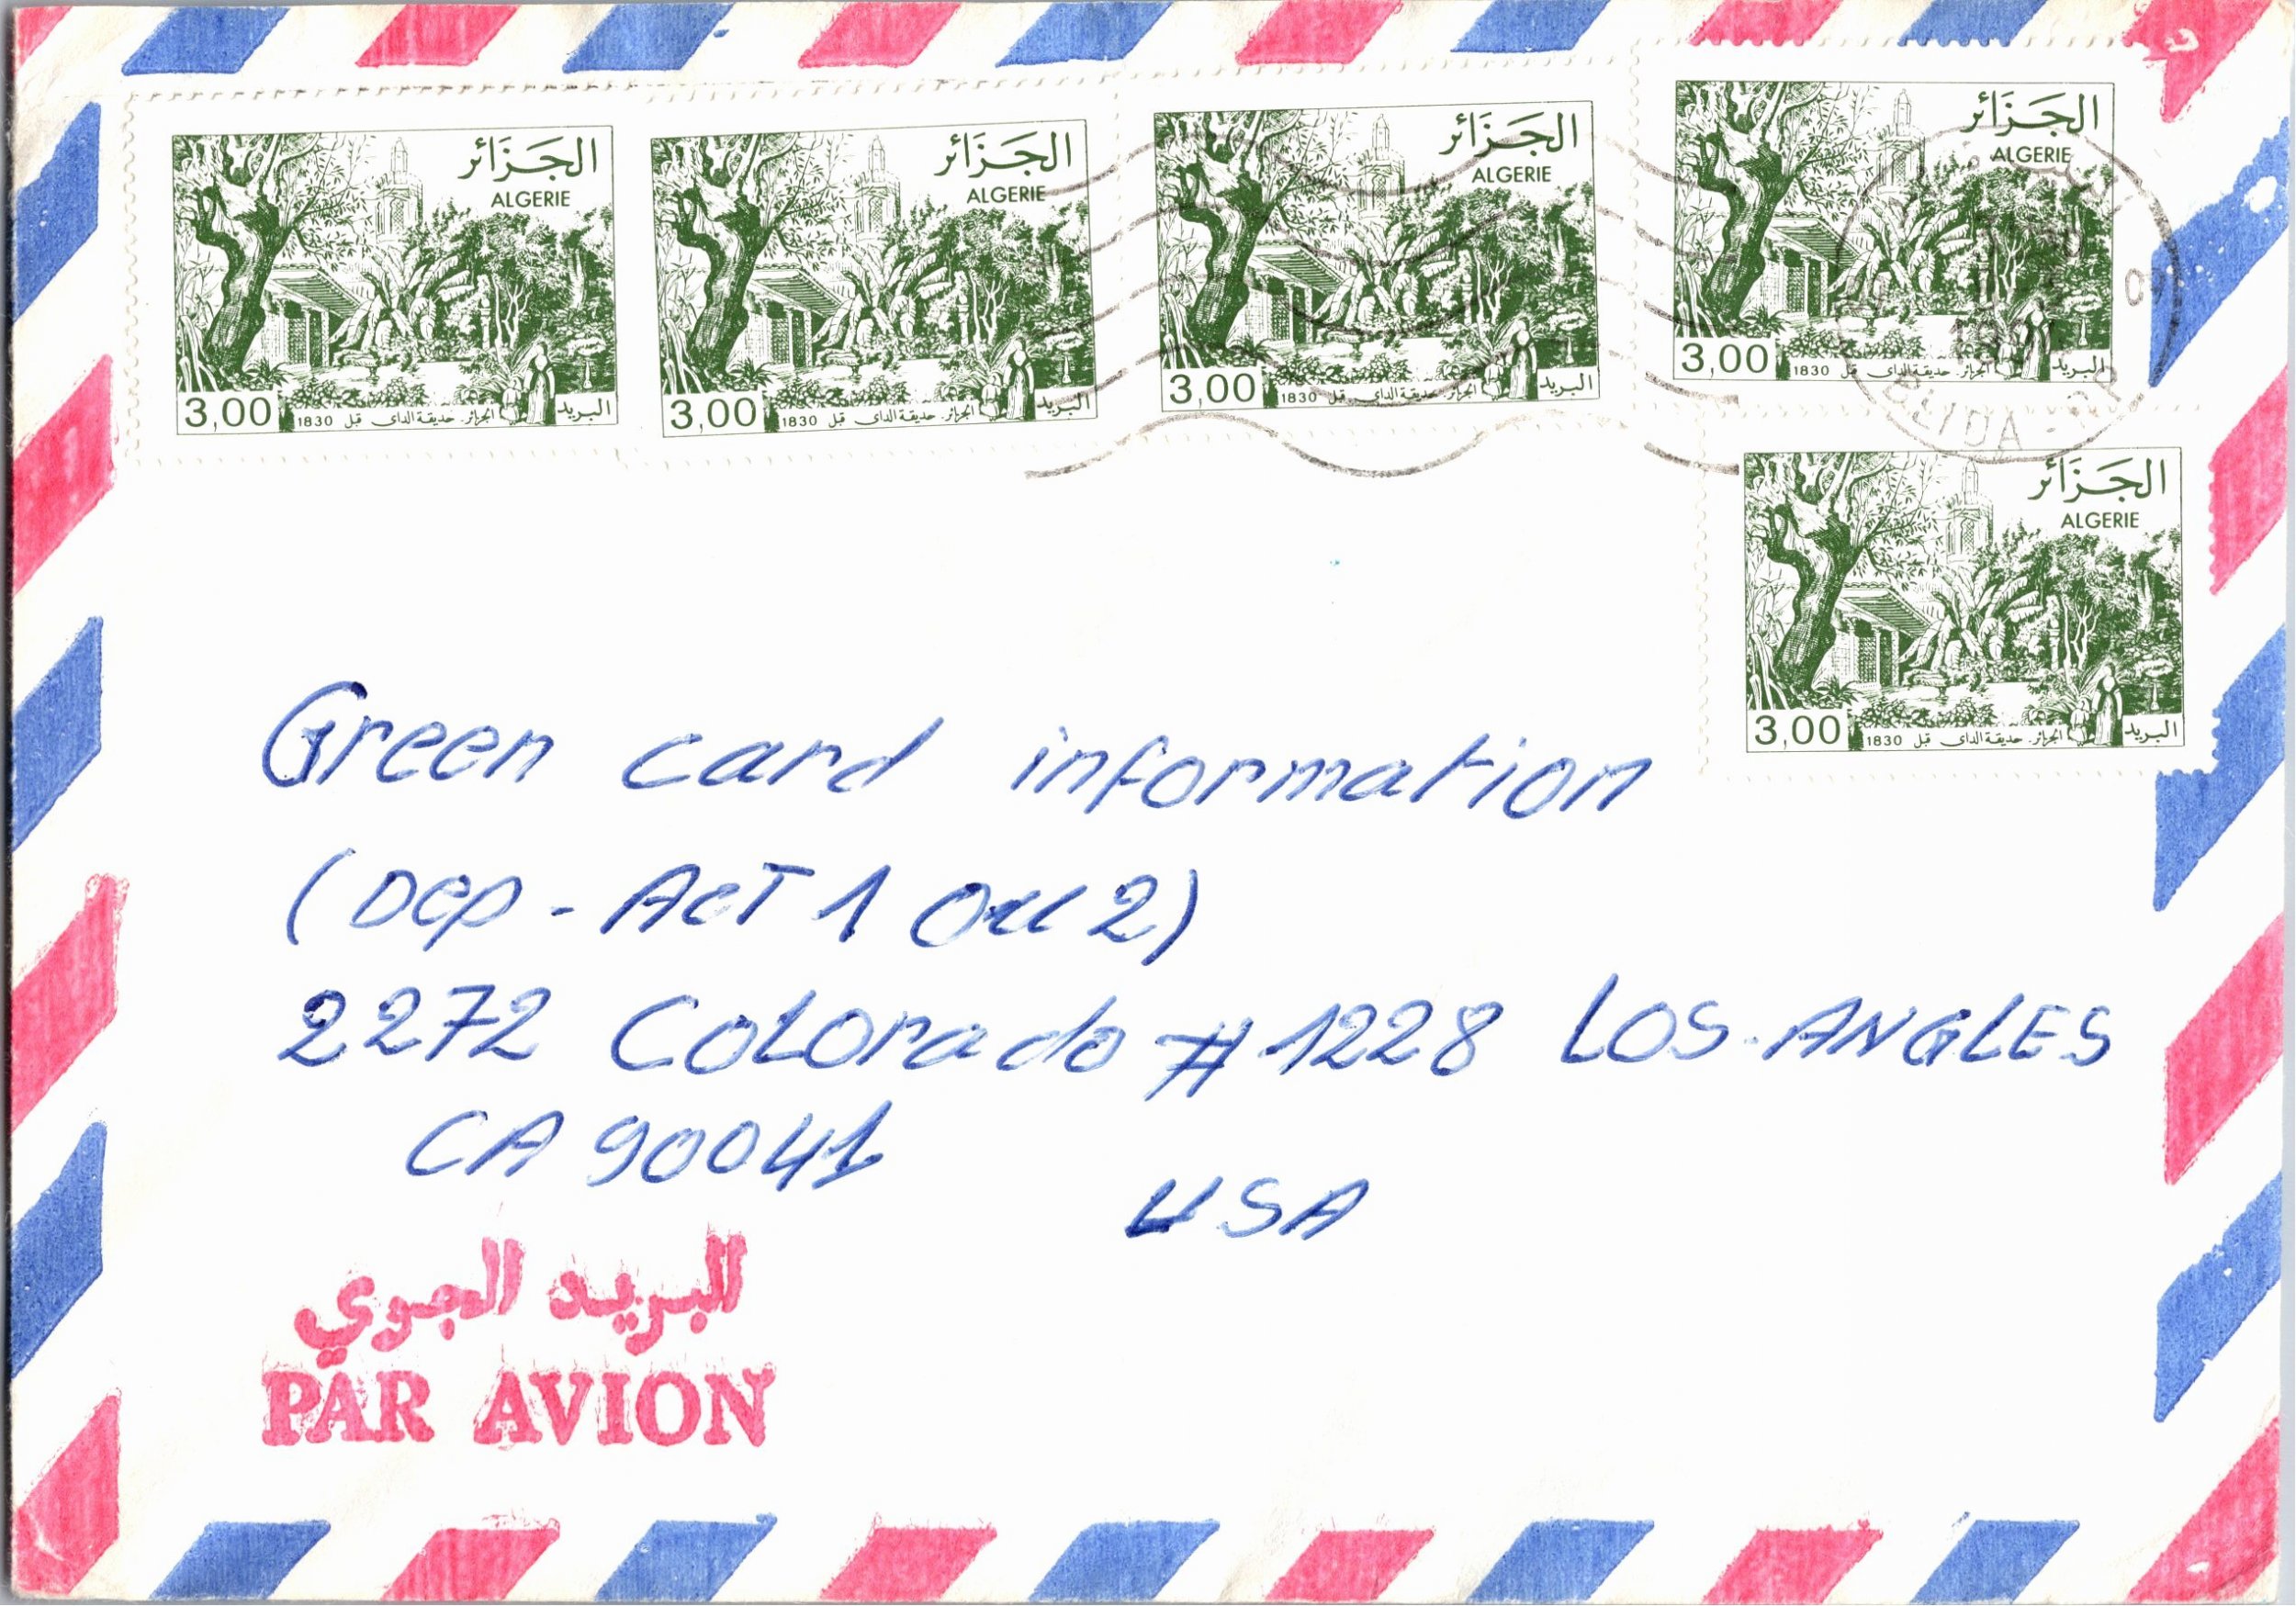 الجزائر
ALGERIE
3,00
1830 الجزائر. حديقة الداي قبل
البريد
الجزائر
ALGERIE
3,00
1830 الجزائر. حديقة الداي قبل
البريد
الجزائر
ALGERIE
3,00
1830 الجزائر. حديقة الداي قبل
البريد
الجزائر
ALGERIE
3,00
1830 الجزائر. حديقة الداي قبل
البريد
BLIDA
الجزائر
ALGERIE
3,00
1830 الجزائر. حديقة الداي قبل
البريد
Green card information
(Dep - AcT 1 ou 2)
2272 CoLorado # 1228 LOS-ANGLES
CA 90041
USA
البريد الجوي
PAR AVION